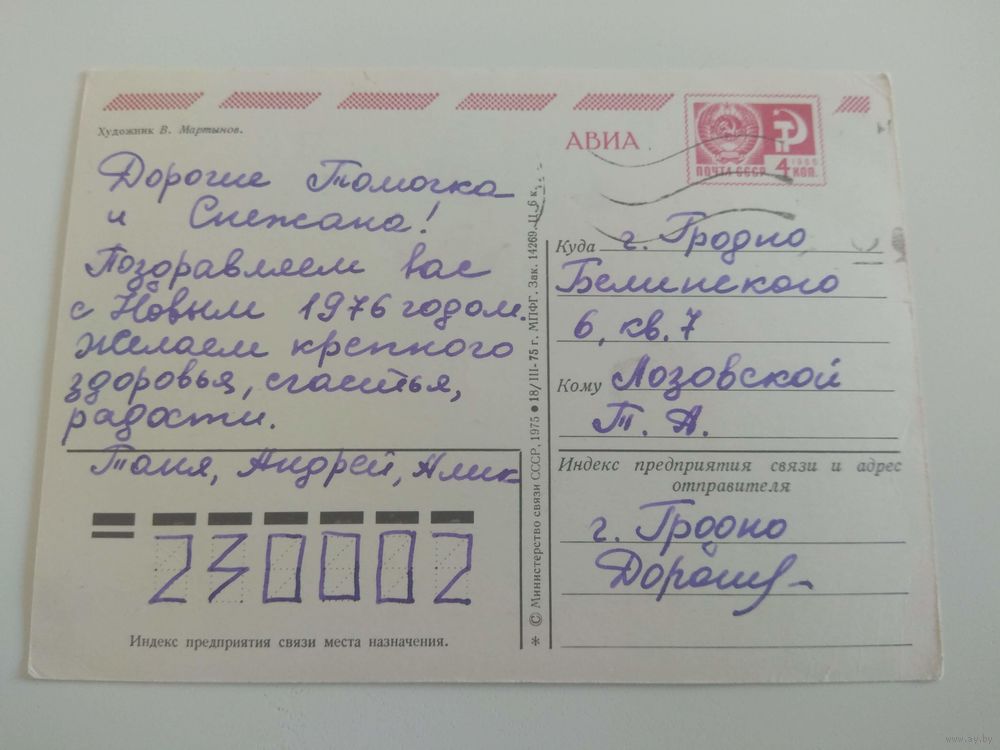 Художник В. Мартынов.
АВИА
ПОЧТА СССР 4 КОП.
1966
Дорогие Томочка
и Снежана!
Поздравляем вас
с Новым 1976 годом.
Желаем крепкого
здоровья, счастья,
радости.
Таня, Андрей, Алик
230002
Индекс предприятия связи места назначения.
© Министерство связи СССР, 1975 ● 18/III-75 г. МПФГ. Зак. 14269. Ц. 6 к.
Куда г. Гродно
Белинского
6, кв. 7
Кому Лозовской
Т. А.
Индекс предприятия связи и адрес
отправителя
г. Гродно
www.ay.by